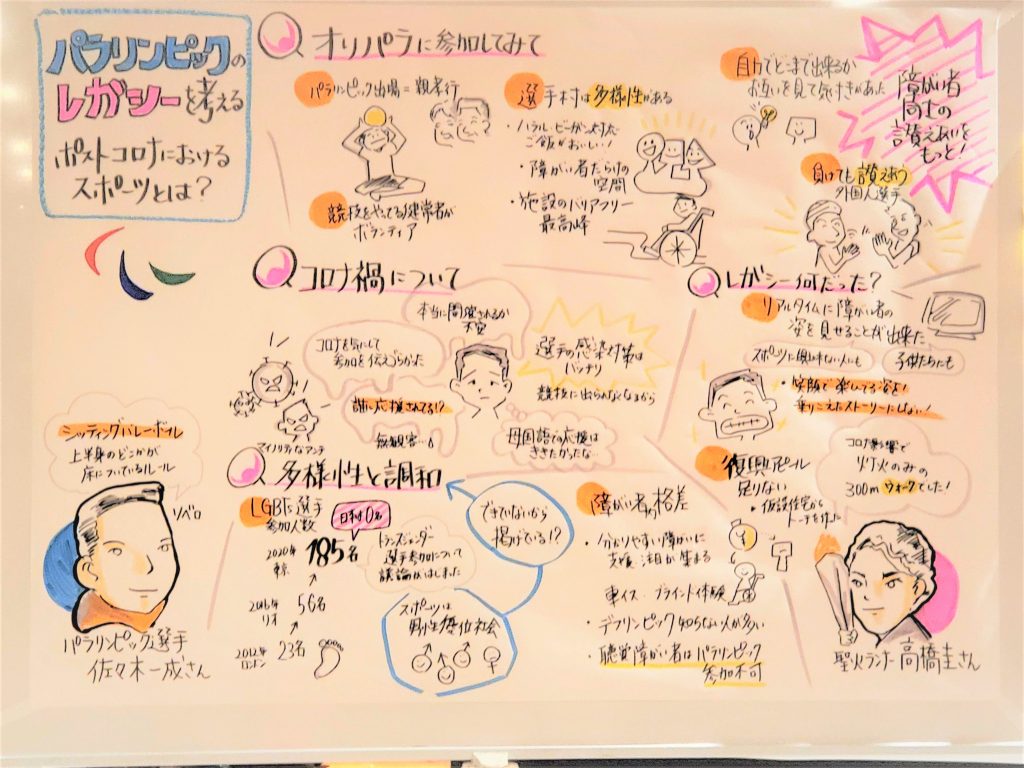 パラリンピックの
レガシーを考える
ポストコロナにおける
スポーツとは？
オリパラに参加してみて
パラリンピック出場=親孝行
競技をやってる健常者が
ボランティア
選手村は多様性がある
・ハラル・ビーガン対応
ご飯がおいしい！
・障がい者だらけの
空間
・施設のバリアフリー
最高峰
自力でどこまで出来るか
お互いを見て気付きがあった
障がい者
同士の
讃えあいを
もっと！
負けても讃えあう
外国人選手
コロナ禍について
本当に開催されるか
不安
コロナを気にして
参加を伝えづらかった
誰に応援されてる!?
無観客…
マイノリティなアンチ
選手の感染対策は
バッチリ
競技に出られなくなるから
母国語での応援は
ききたかったな…
レガシー何だった？
リアルタイムに障がい者の
姿を見せることが出来た
スポーツに興味ない人にも
子供たちにも
・笑顔で楽しんでる姿を！
乗りこえたストーリーじゃない！
復興アピール
足りない
・仮設住宅から
トーチを作った
コロナ影響で
灯火のみの
300mウォークでした！
聖火ランナー高橋圭さん
シッティングバレーボール
上半身のどこかが
床についているルール
リベロ
パラリンピック選手
佐々木一成さん
多様性と調和
LGBTs選手
参加人数
日本は0名
2020年
東京
185名
2016年
リオ
56名
2012年
ロンドン
23名
トランスジェンダー
選手参加について
議論がはじまった
できていないから
掲げている!?
スポーツは
男性優位社会
障がい者内格差
・分かりやすい障がいに
支援・注目が集まる
車イス・ブラインド体験
・デフリンピック知らない人が多い
・聴覚障がい者はパラリンピック
参加不可